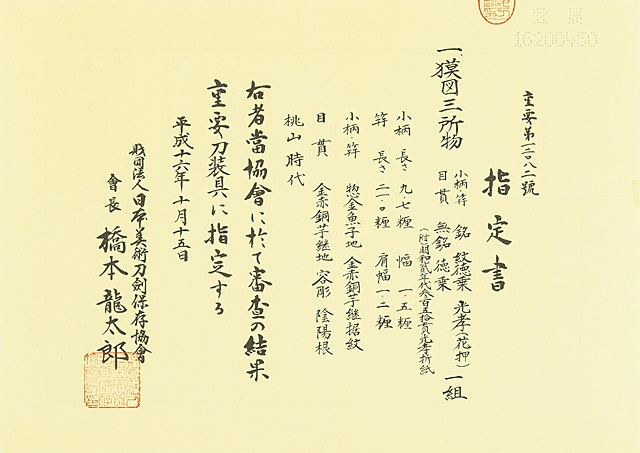 重要第一二〇八二號
指定書
一、獏図三所物
小柄・笄 銘 紋徳乗 光孝(花押)
目貫 無銘 徳乗
一組
小柄 長さ 九・七糎 幅 一・五糎
笄 長さ 二一・〇糎 肩幅 一・二糎
小柄・笄 惣金魚子地 金赤銅芋継据紋
目貫 金赤銅芋継地 容彫 陰陽根
桃山時代
右者當協會に於て審査の結果
重要刀装具に指定する
平成十六年十月十五日
財団法人日本美術刀劍保存協會
會長 橋本龍太郎